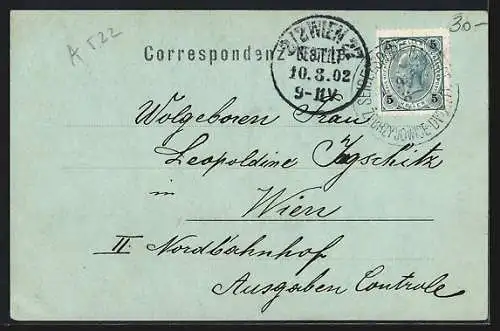 A 522
30-
Correspondenz-
2/2 WIEN 2/2
BESTELLT
10.3.02
9-11V
5 5
5 5
Wolgeboren Frau
Leopoldine Jgschitz
in
Wien
II. Nordbahnhof
Ausgaben Controle